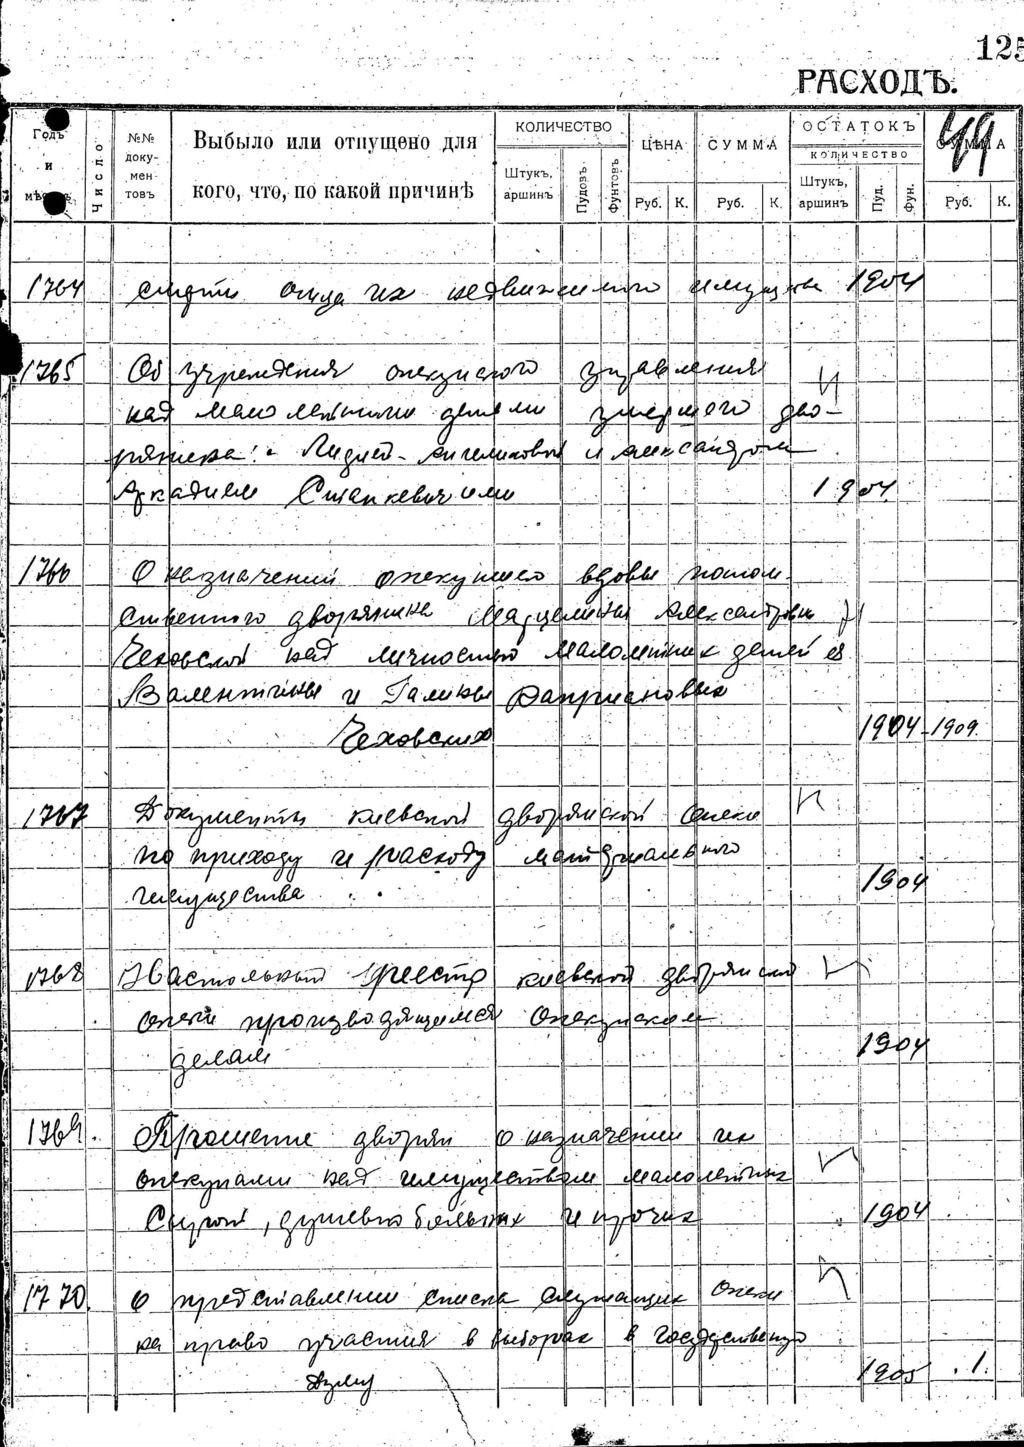 125
РАСХОДЪ.
49
Годъ и мѣсяцъ Число №№ документовъ Выбыло или отпущено для кого, что, по какой причинѣ КОЛИЧЕСТВО Штукъ, аршинъ Пудовъ Фунтовъ ЦѢНА Руб. К. СУММА Руб. К. ОСТАТОКЪ КОЛИЧЕСТВО Штукъ, аршинъ Пуд. Фун. СУММА Руб. К.
1764 смерти отца их недвижимого имущества 1904
1765 Об учреждения опекунского управления
над малолетними детьми умершего дво-
рянина: Лидией-Ангеликовой и Александром
Аркадием Станкевичими 1904.
1766 О назначении опекуншею вдовы потом-
ственного дворянина Марцелины Александровны
Чеховской над личностью малолетних детей её
Валентины и Галины
Чеховских 1904-1909.
1767 Документы киевской дворянской опеки
по приходу и расходу материального
имущества 1904
1768 Настольный реестр киевской дворянской
опеки производящимся опекунским
делам 1904
1769. Прошение дворян о назначении их
опекунами над имуществом малолетних
сирот, душевнобольных и прочих 1904
1770. О представлении списка служащих опеки
на право участия в выборах в государственную
думу 1905 .1.